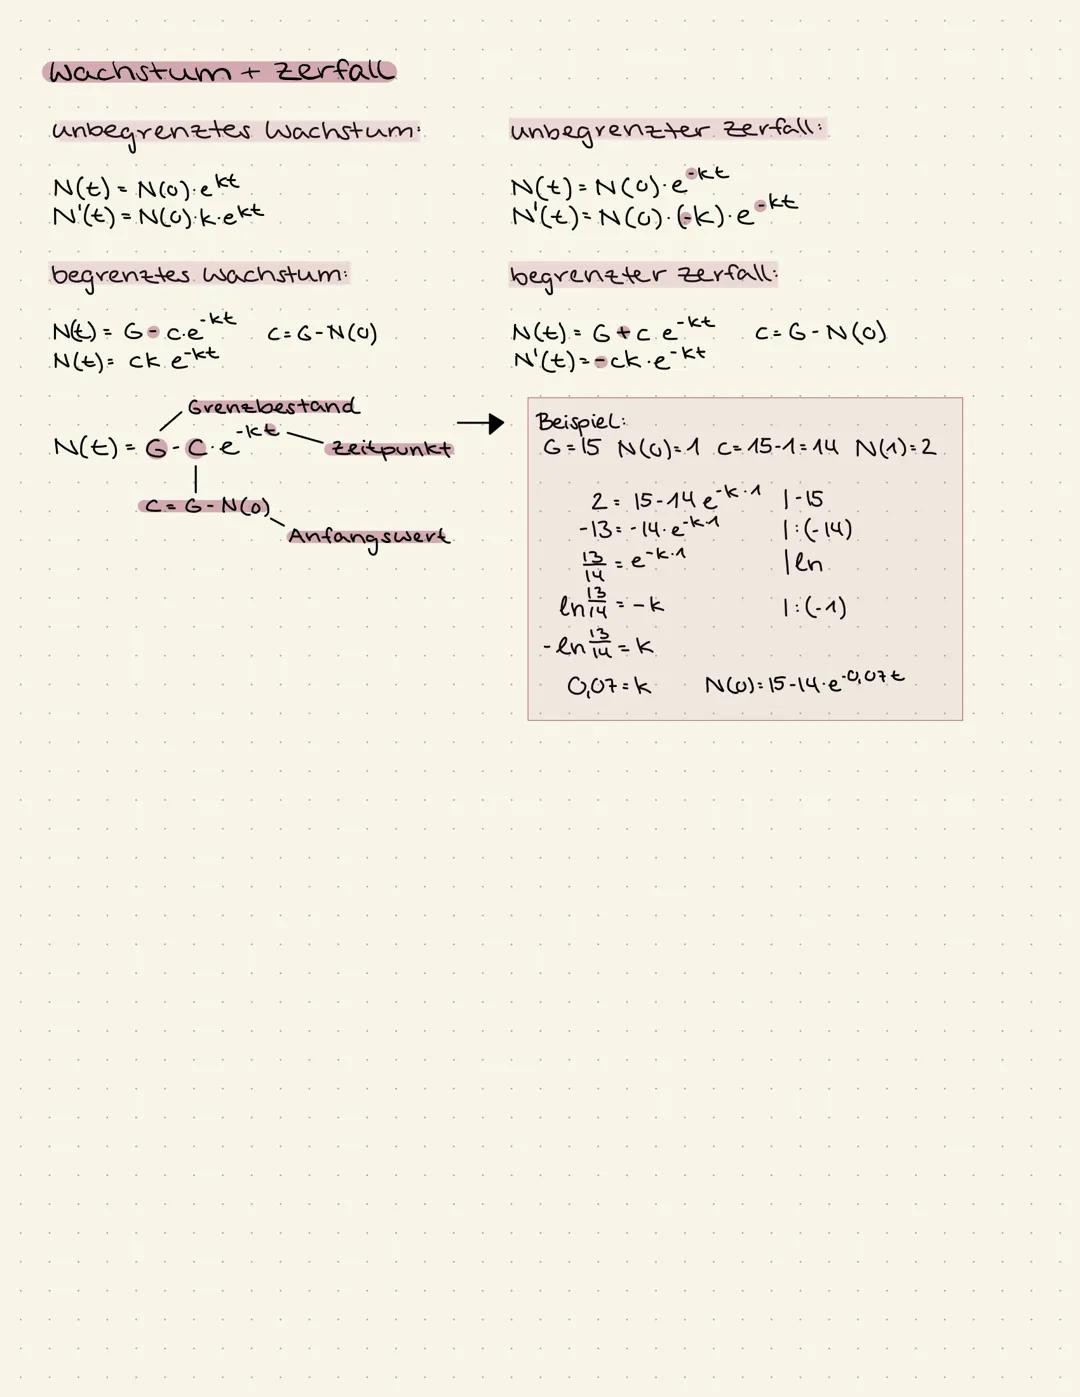 Wachstum + Zerfall
unbegrenztes Wachstum:
N(t) = N(0)·e^kt
N'(t) = N(0)·k·e^kt
unbegrenzter Zerfall:
N(t) = N(0)·e^-kt
N'(t) = N(0)·(-k)·e^-kt
begrenztes Wachstum:
N(t) = G - c·e^-kt   c = G - N(0)
N(t) = ck·e^-kt
begrenzter Zerfall:
N(t) = G + c·e^-kt   c = G - N(0)
N'(t) = -ck·e^-kt
Grenzbestand
N(t) = G - C·e^-kt
Zeitpunkt
C = G - N(0)
Anfangswert
Beispiel:
G = 15  N(0) = 1  C = 15-1 = 14  N(1) = 2
2 = 15-14 e^-k·1  |-15
-13 = -14·e^-k·1  |:(-14)
13/14 = e^-k·1  |ln
ln 13/14 = -k  |:(-1)
-ln 13/14 = k
0,07 = k   N(0) = 15-14·e^-0,07t